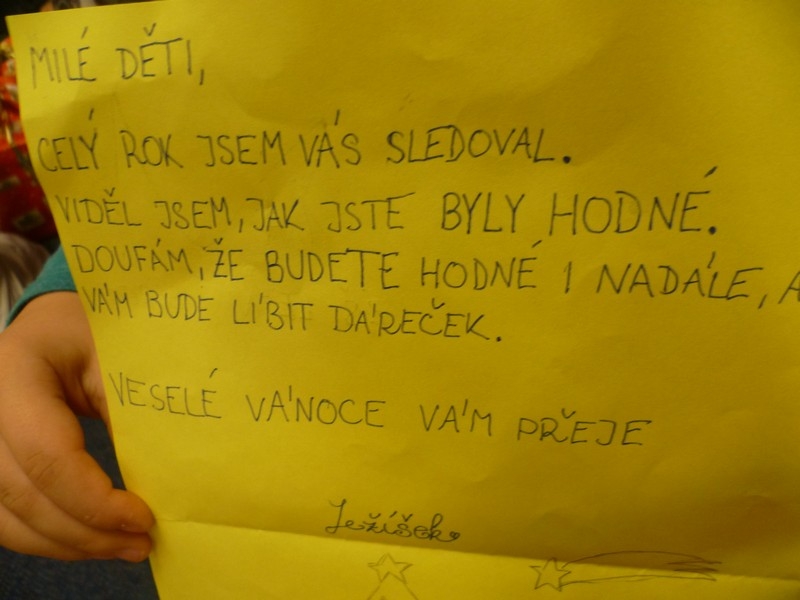 MILÉ DĚTI,
CELÝ ROK JSEM VÁS SLEDOVAL.
VIDĚL JSEM, JAK JSTE BYLY HODNÉ.
DOUFÁM, ŽE BUDETE HODNÉ I NADÁLE, A
VÁM BUDE LÍBIT DÁREČEK.
VESELÉ VÁNOCE VÁM PŘEJE
Ježíšek